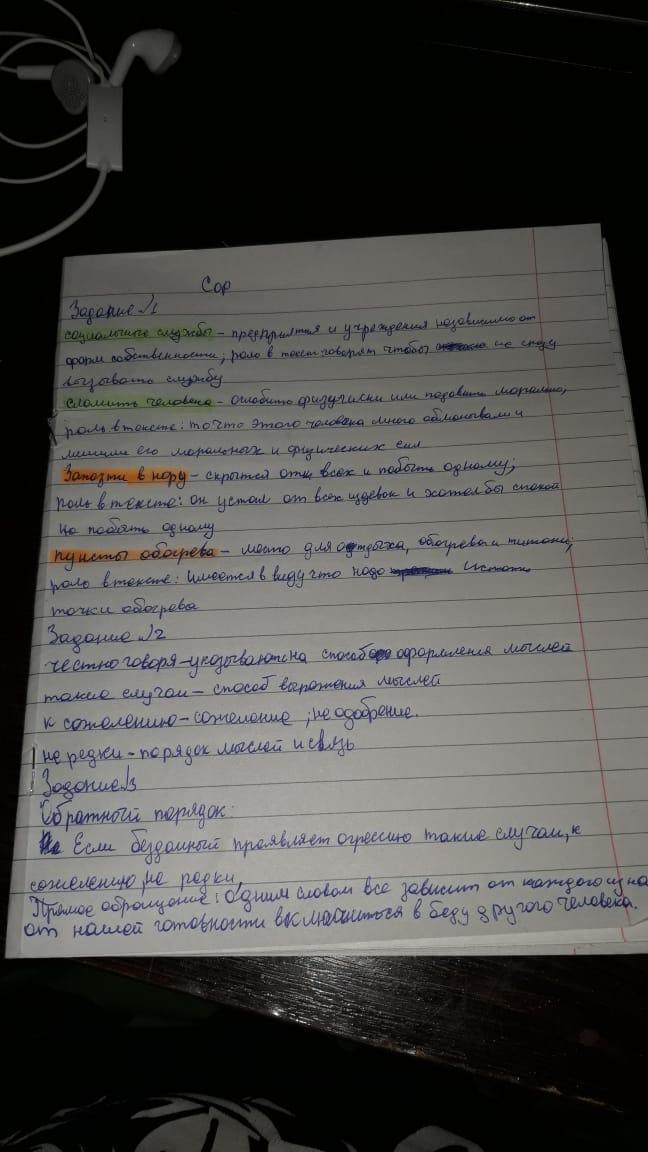 Сор
Задание №1
социальные службы - предприятия и учреждения независимо от
форм собственности; роль в текст говорят чтобы не сразу
вызывать службу
сломить человека - ослабить физически или подавить морально,
роль в тексте: то что этого человека много обманывали и
лишили его моральных и физических сил
Заползти в нору - скрытся от всех и побыть одному;
роль в тексте: он устал от всех и хотел бы спокой
но побыть одному
пункты обогрева - место для отдыха, обогрева и питания;
роль в тексте: имеется в виду что надо
точки обогрева
Задание №2
честно говоря - указывают на способ оформления мыслей
такие случаи - способ выражения мыслей
к сожелению - сожеление, не одобрение.
не редки - порядок мыслей и связь
Задание 3
Обратный порядок:
Если бездомный проявляет огрессию такие случаи, к
сожелению, не редки,
Прямое обращение: Одним словом все зависит от каждого из на
от нашей готовности вкмешиться в беду другого человека.